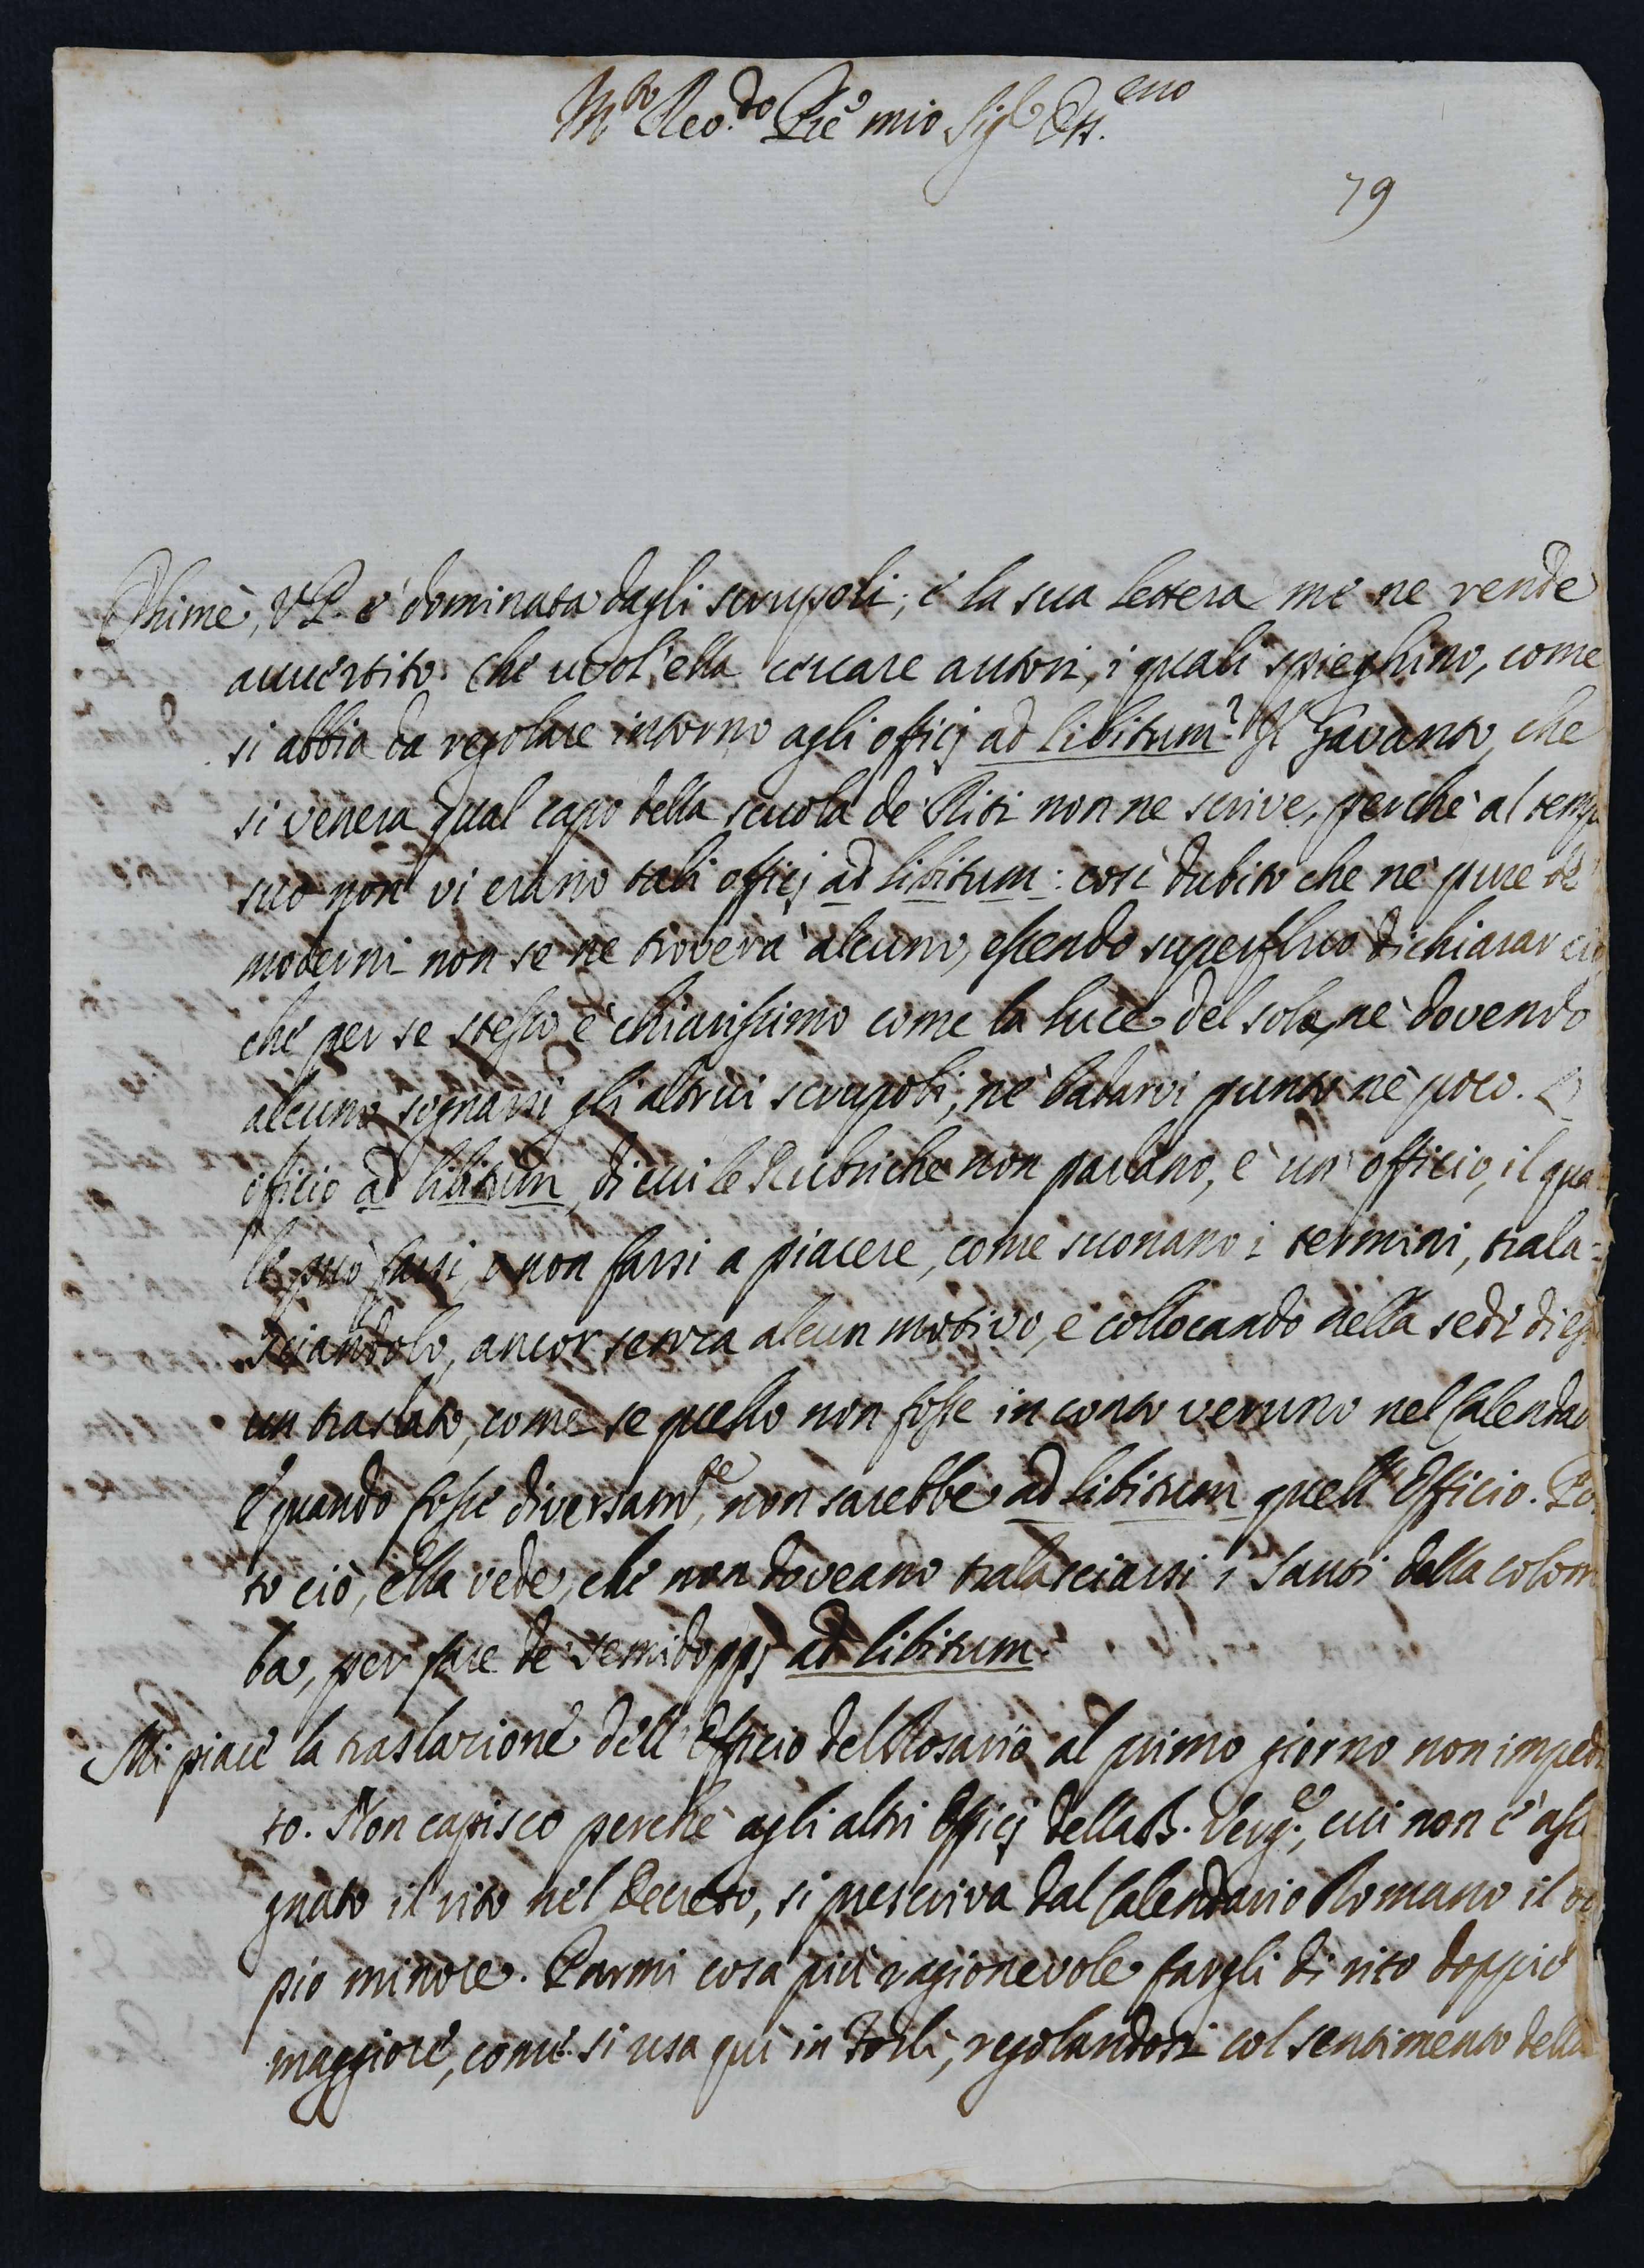 M.to Rev.do Pre mio Sig.e Oss.mo
79
Ohimè, V.P. è dominata dagli scrupoli; e la sua lettera me ne rende
avvertito. Che vuol'ella cercare autori, i quali spieghino, come
si abbia da regolare intorno agli officj ad libitum? Il Gavanto, che
si venera qual capo della scuola de' Riti non ne scrive, perchè al temp
suo non vi erano tali officj ad libitum: così dubito che nè pure de'
moderni non se ne troverà alcuno, essendo superfluo dichiarar ciò
che per se stesso è chiarissimo come la luce del sole, nè dovendo
alcuno sognarsi gli altrui scrupoli, nè badarvi punto nè poco. L'
officio ad libitum, di cui le Rubriche non parlano, è un officio, il qua
le può farsi, o non farsi a piacere, come suonano i termini, trala=
sciandolo, ancor senza alcun motivo, e collocando nella sede di ess
un traslato, come se quello non fosse in conto veruno nel Calendar
E quando fosse diversam.te, non sarebbe ad libitum quell'Officio. Po
to ciò, ella vede, che non doveano tralasciarsi i Santi della colom
ba, per fare de' semidoppj ad libitum.
Mi piace la traslazione dell'Officio del Rosario al primo giorno non impedi
to. Non capisco perchè agli altri Officj della B. Verg.e, cui non è asse
gnato il rito nel Decreto, si prescriva dal Calendario Romano il do
pio minore. Parmi cosa più ragionevole fargli di rito doppio
maggiore, come si usa quì in Forlì, regolandosi col sentimento della